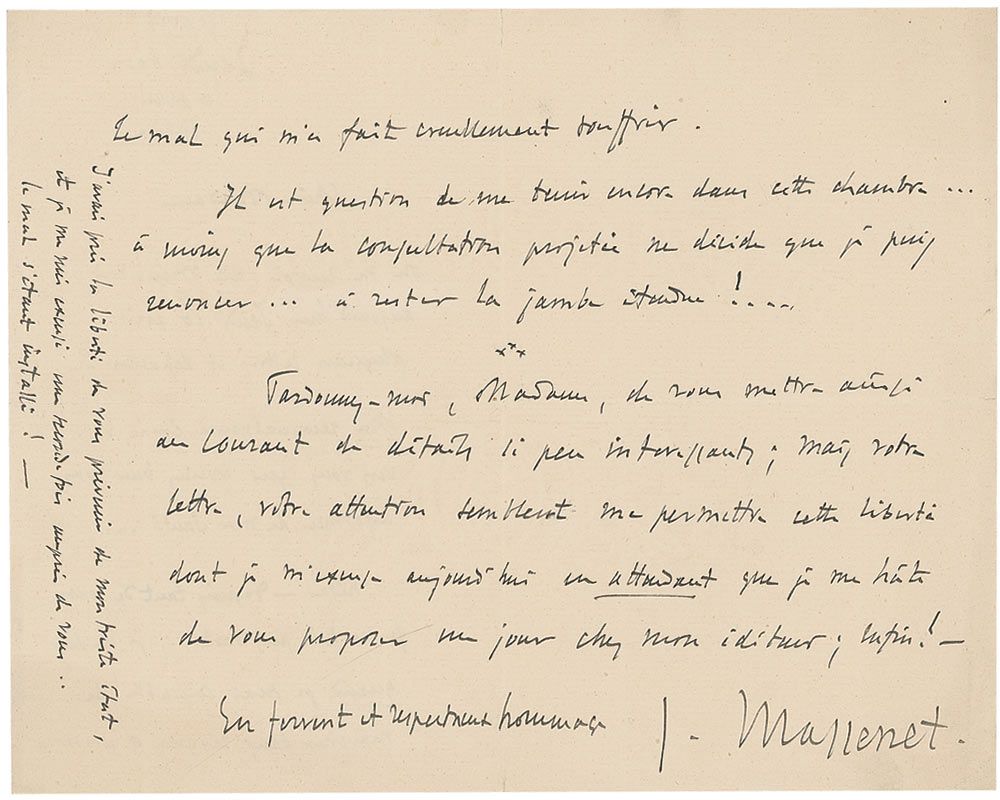 le mal qui m'a fait cruellement souffrir.
Il est question de me tenir encore dans cette chambre...
à moins que la consultation projetée ne décide que je puis
renoncer... à rester la jambe étendue!....
Pardonnez-moi, Madame, de vous mettre ainsi
au courant de détails si peu intéressants; mais votre
lettre, votre attention semblent me permettre cette liberté
dont je m'excuse aujourd'hui en attendant que je me hâte
de vous proposer un jour chez mon éditeur; enfin! —
En fervent et respectueux hommage
J. Massenet.
J'avais pris la liberté de vous prévenir de mon triste état,
et je me suis excusé une seconde fois auprès de vous..
le mal s'étant installé! —